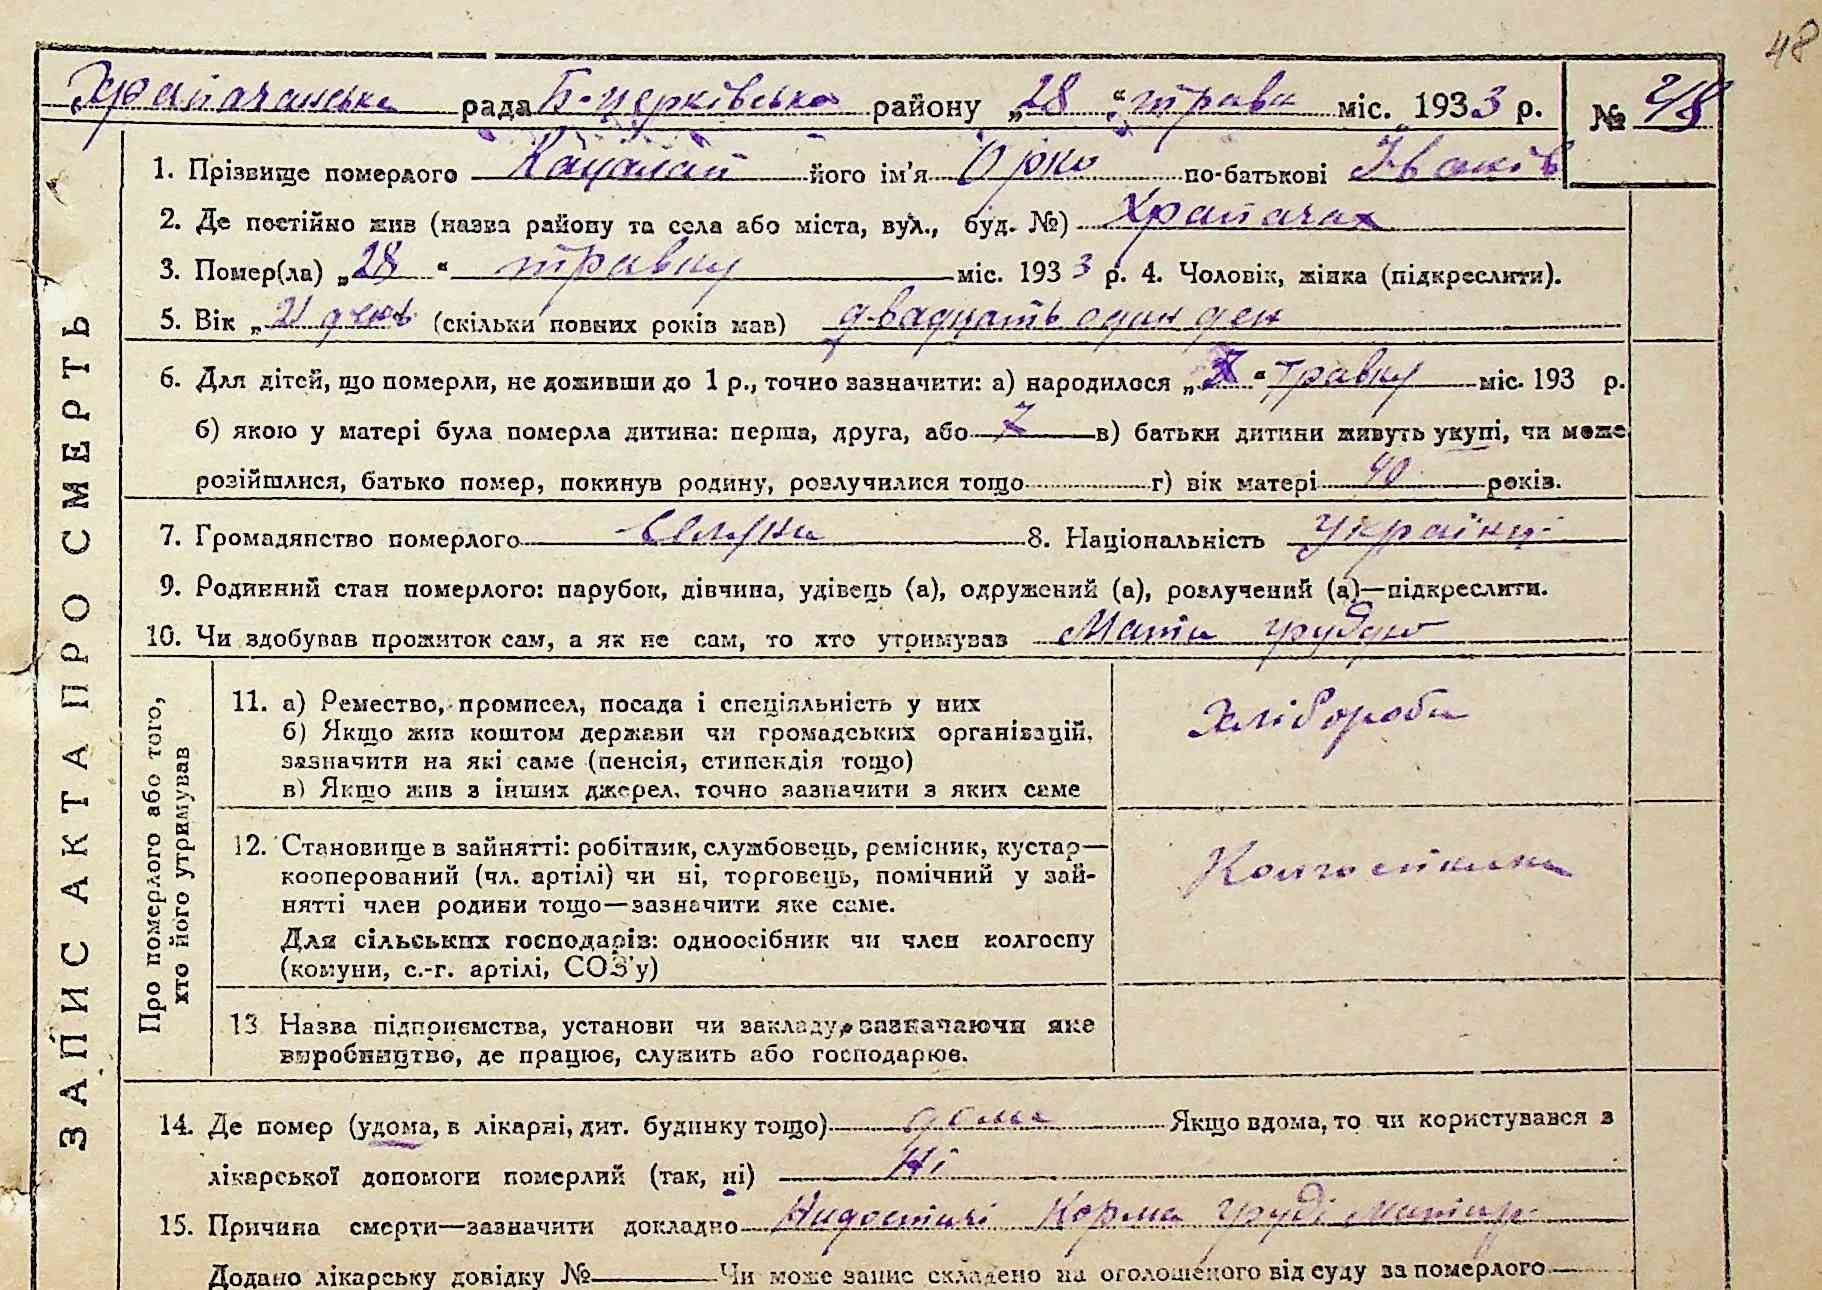 48
Храпачанська рада Б-церківська району „28“ трава міс. 1933 р. №
1. Прізвище померлого Кацалап його ім'я Юрко по-батькові Іванів
2. Де постійно жив (назва району та села або міста, вул., буд. №) Храпачах
3. Помер(ла) „28“ травну міс. 1933 р. 4. Чоловік, жінка (підкреслити).
5. Вік „21 день (скільки повних років мав) двадцать один ден
6. Для дітей, що померли, не доживши до 1 р., точно зазначити: а) народилося „7“ травну міс. 193 р.
б) якою у матері була померла дитина: перша, друга, або 7 в) батьки дитини живуть укупі, чи може
розійшлися, батько помер, покинув родину, розлучилися тощо г) вік матері 40 років.
7. Громадянство померлого 8. Національність україн
9. Родинний стан померлого: парубок, дівчина, удівець (а), одружений (а), розлучений (а)—підкреслити.
10. Чи здобував прожиток сам, а як не сам, то хто утримував Мати грудью
ЗАПИС АКТА ПРО СМЕРТЬ
Про померлого або того,
хто його утримував
11. а) Ремество, промисел, посада і спеціяльність у них
б) Якщо жив коштом держави чи громадських організацій,
зазначити на які саме (пенсія, стипендія тощо)
в) Якщо жив з інших джерел, точно зазначити з яких саме
Хлібороби
12. Становище в зайнятті: робітник, службовець, ремісник, кустар—
кооперований (чл. артілі) чи ні, торговець, помічний у зай-
нятті член родини тощо—зазначити яке саме.
Для сільських господарів: одноосібник чи член колгоспу
(комуни, с.-г. артілі, СОЗ'у)
13 Назва підприємства, установи чи закладу, зазначаючи яке
виробництво, де працює, служить або господарює.
14. Де помер (удома, в лікарні, дит. будинку тощо) дома Якщо вдома, то чи користувався з
лікарської допомоги померлий (так, ні) Ні
15. Причина смерти—зазначити докладно Нидостачі корма груді матир
Додано лікарську довідку № Чи може запис складено на оголошеного від суду за померлого